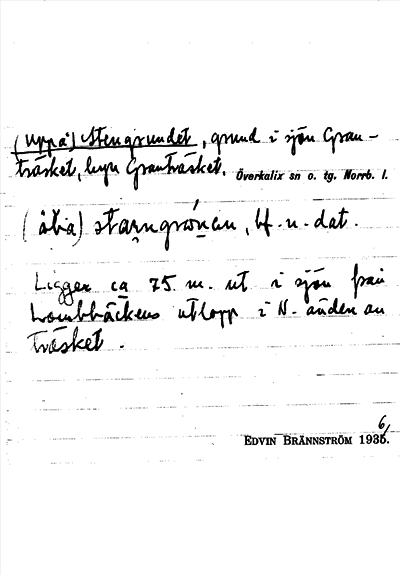 (Uppå) Stengrundet, grund i sjön Gran-
träsket, byn Granträsket. Överkalix sn o. tg. Norrb. l.
bf. n. dat.
Ligger ca 75 m. ut i sjön från
utlopp i N. änden av
träsket.
6/
EDVIN BRÄNNSTRÖM 1935.